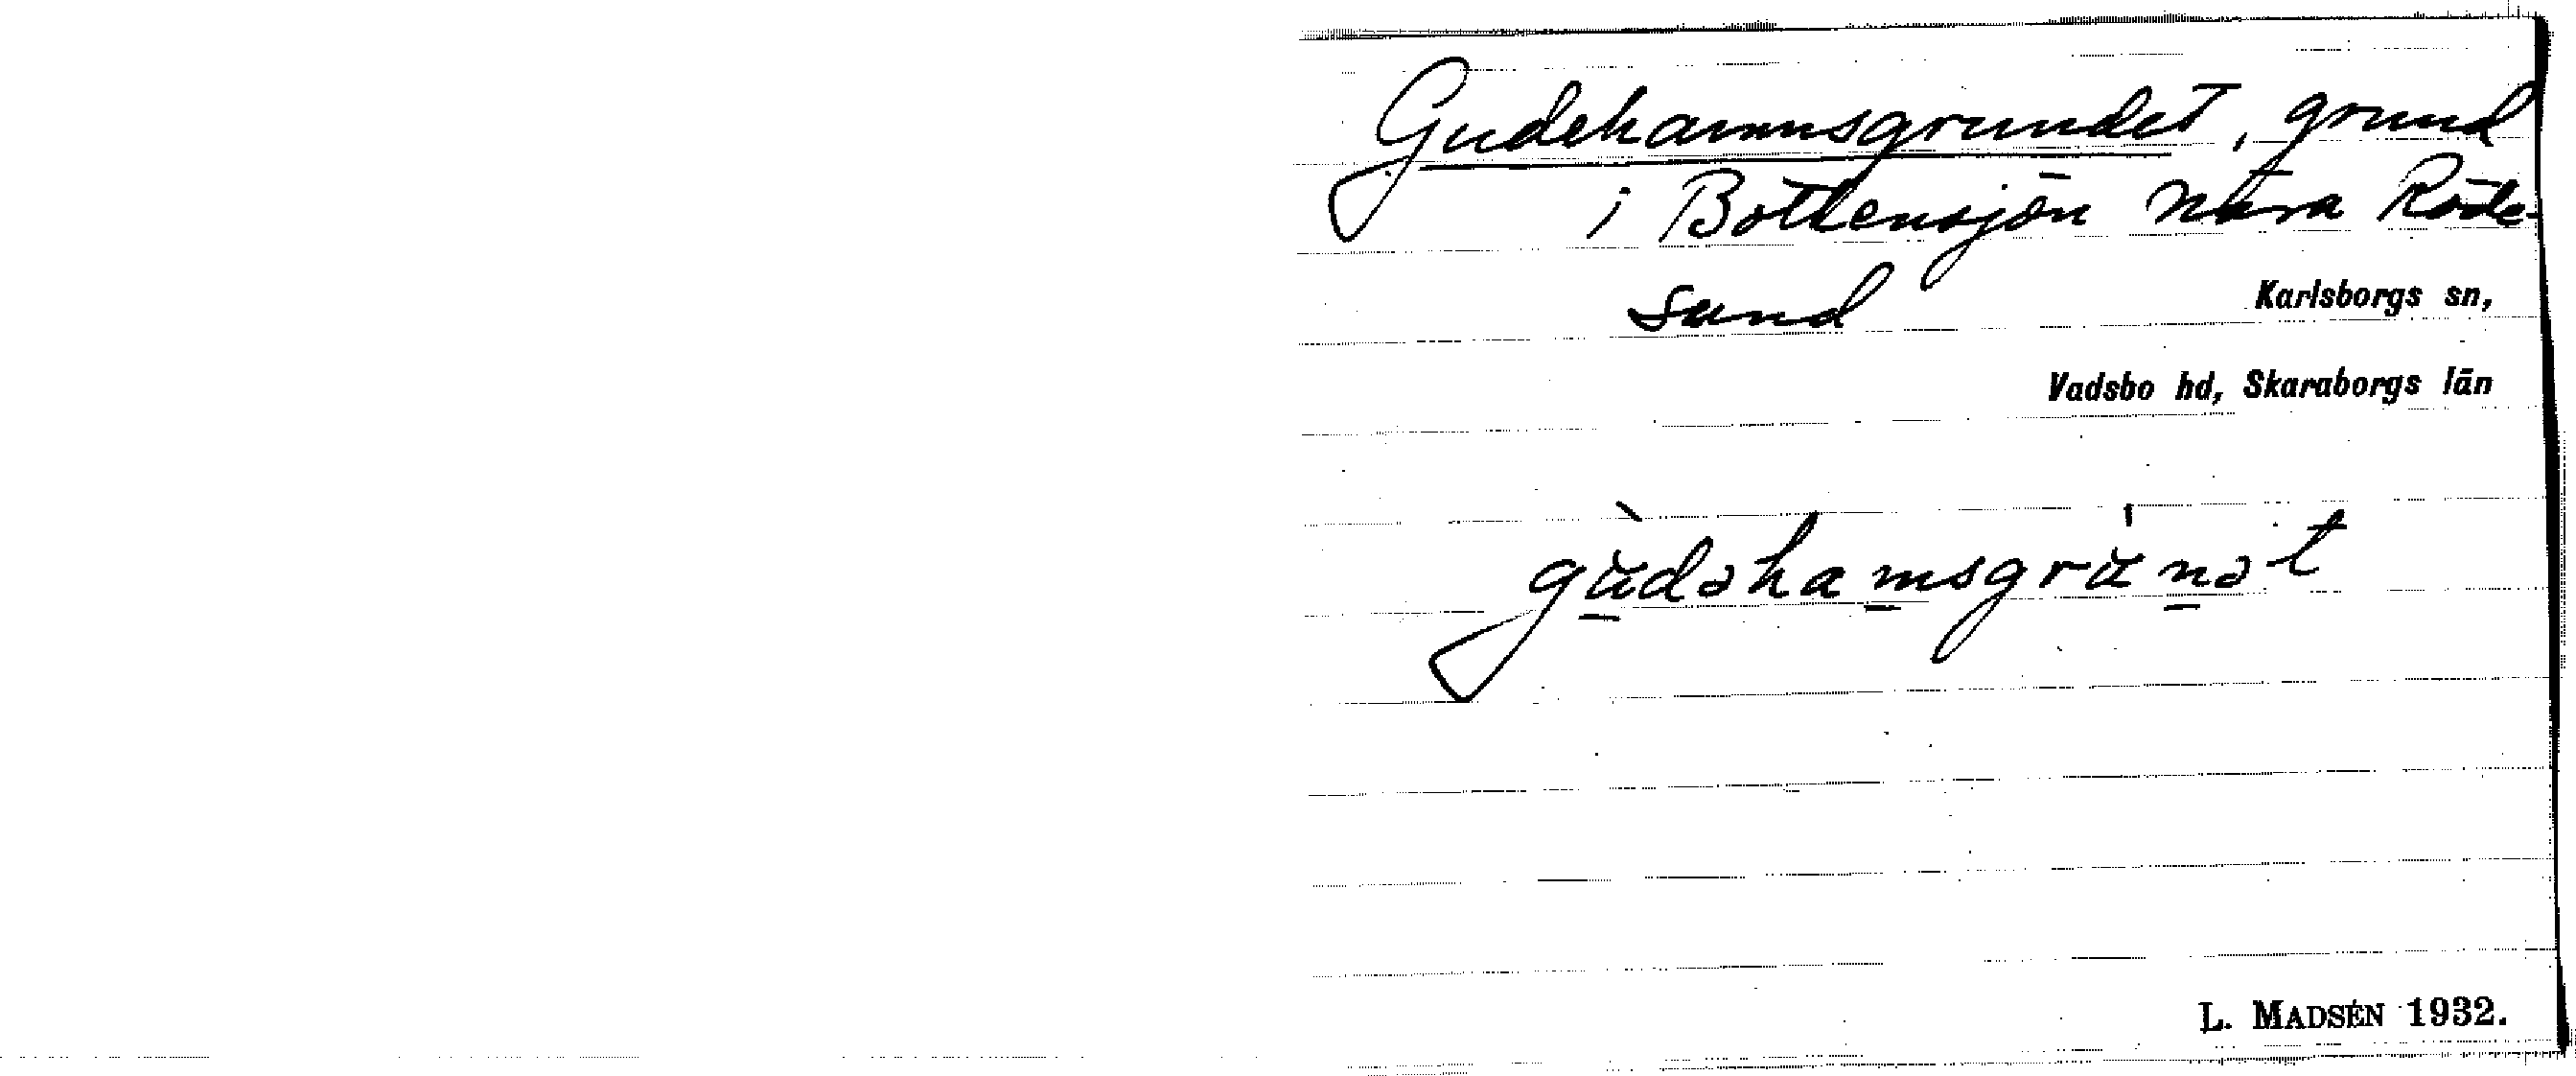 Gudehamnsgrundet, grund
i Bottensjön nära Röde-
sund
Karlsborgs sn,
Vadsbo hd, Skaraborgs län
gùdəhamsgrúnət
L. MADSÉN 1932.